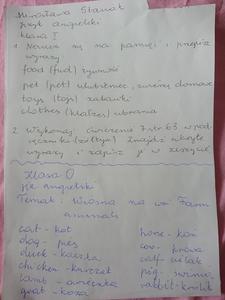 Mirosława Stanak
język angielski
klasa I
1. Naucz się na pamięć i przepisz
wyrazy
food (fud) żywność
pet (pet) ulubieniec, zwierzę domowe
toys (tojs) zabawki
clothes (klałzes) ubrania
2. Wykonaj ćwiczenie 7 str 63 w pod
ręczniku (żółtym). Znajdź ukryte
wyrazy i zapisz je w zeszycie
Klasa O
język angielski
Temat: Wiosna na wsi Farm
animals
cat - kot horse - koń
dog - pies cow - krowa
duck - kaczka calf - cielak
chicken - kurczak pig - świnia
lamb - owieczka rabbit - królik
goat - koza